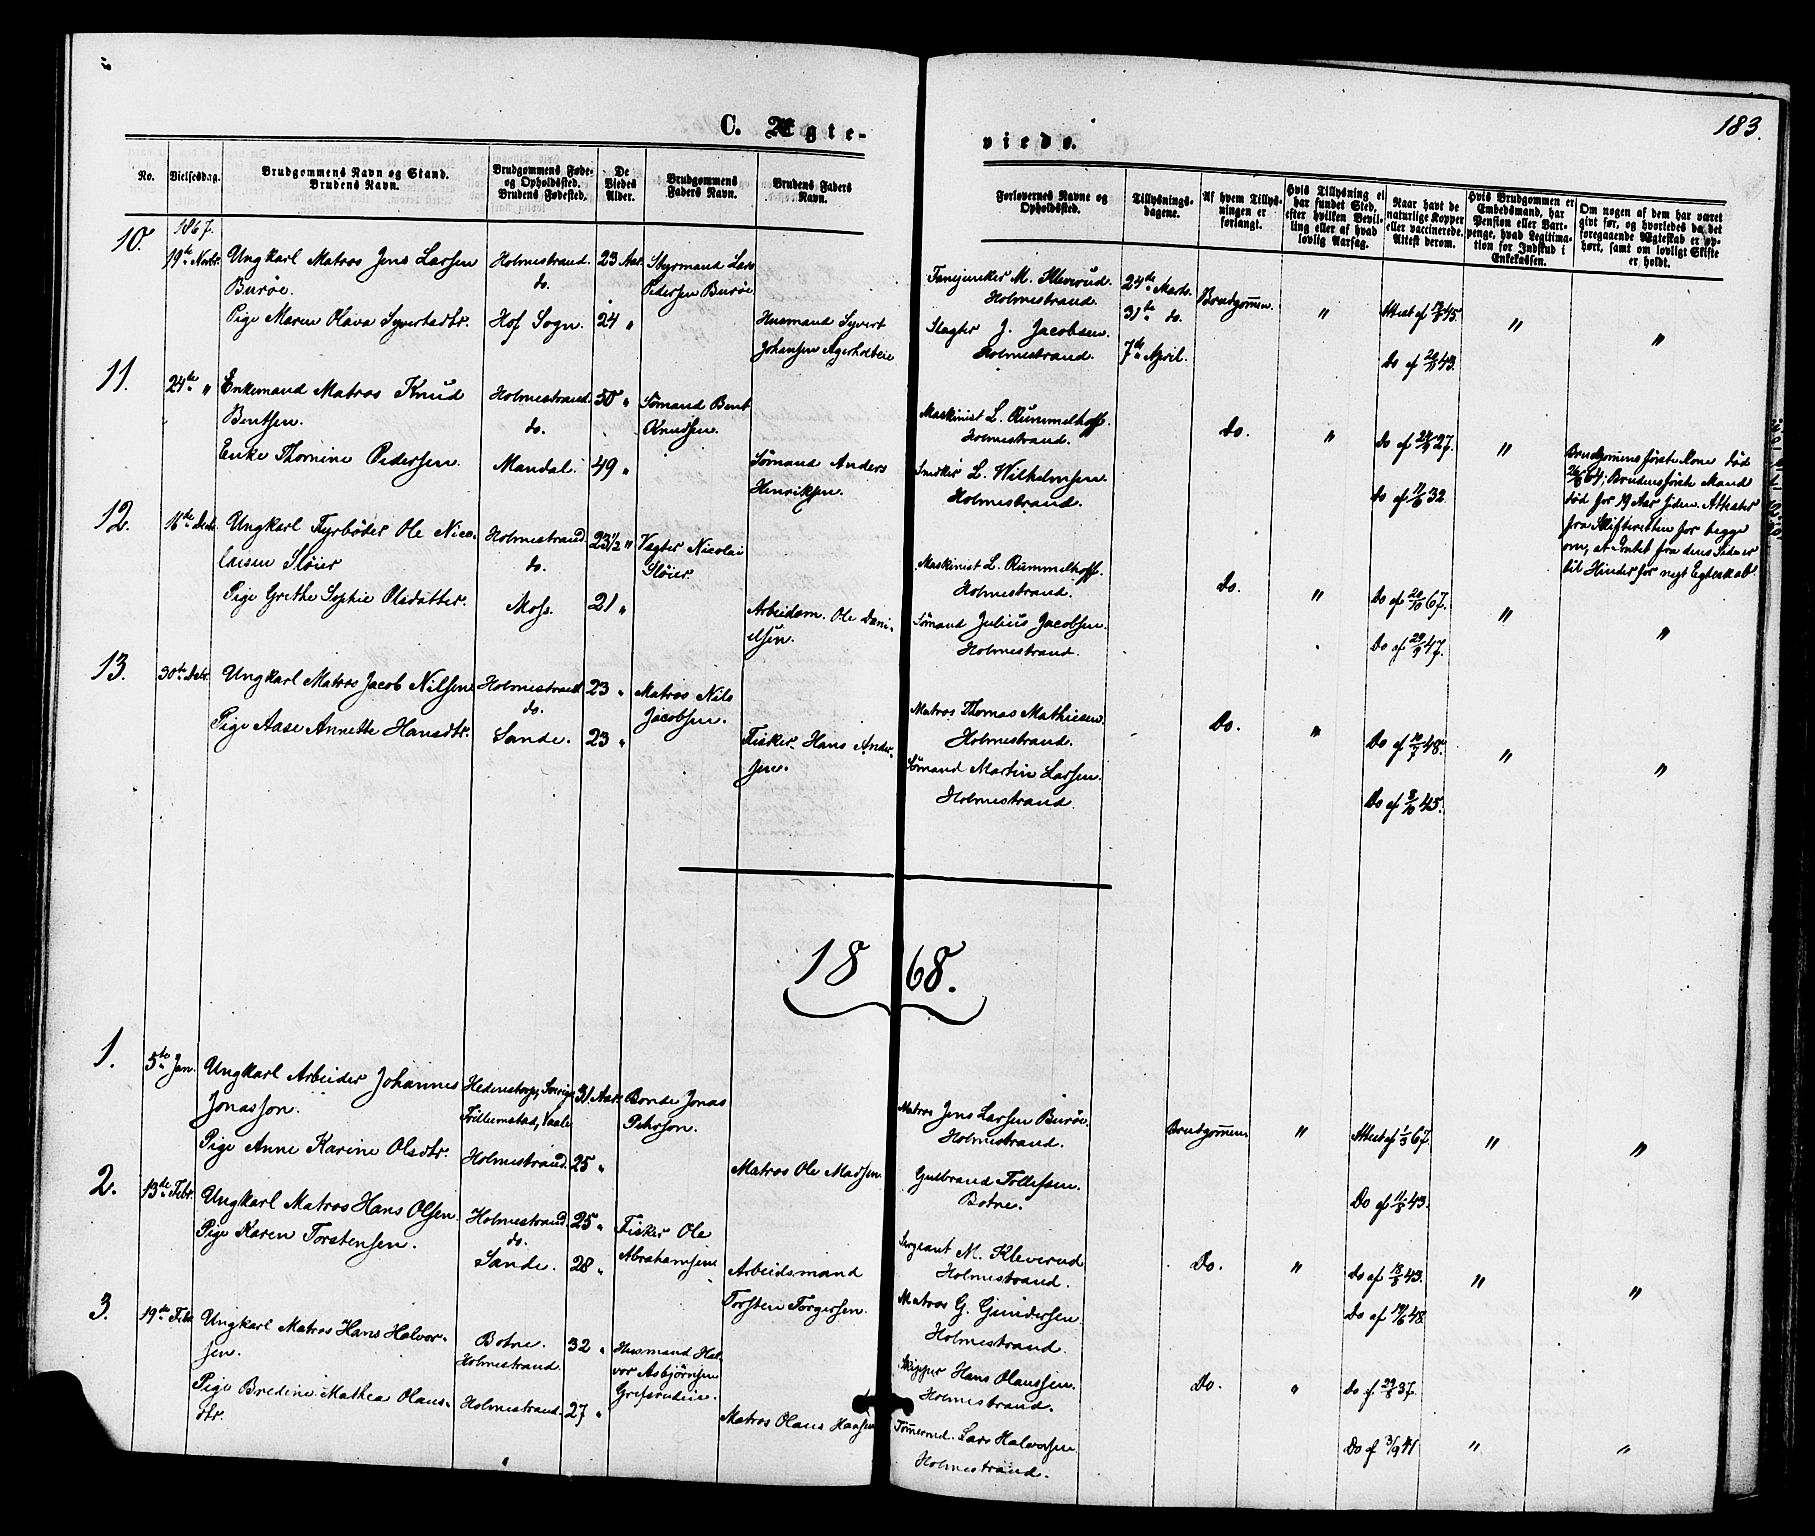 183.
C. Ægte-
viede.
No.
Vielsesdag.
Brudgommens Navn og Stand.
Brudens Navn.
Brudgommens Føde-
og Opholdssted.
Brudens Fødested.
De
Viedes
Alder.
Brudgommens
Faders Navn.
Brudens Faders
Navn.
Forlovernes Navne og
Opholdssted.
Tillysnings-
dagene.
Af hvem Tillys-
ningen er
forlangt.
Hvis Tillysning ei
har fundet Sted,
efter hvilken Bevil-
ling eller af hvad
lovlig Aarsag.
Naar havt de
naturlige Kopper
eller vaccinerede.
Attest derom.
Hvis Brudgommen er
Embedsmand, har
Pension eller Vart-
penge, hvad Legitima-
tion for Indskud i
Enkekassen.
Om nogen af dem har været
gift før, og hvorledes da det
foregaaende Ægteskab er op-
hørt, samt om lovligt Skifte
er holdt.
1867.
10.
19de Novbr.
Ungkarl Matros Jens Larsen
Burøe.
Pige Maren Olava Syvertsdtr.
Holmestrand
do.
Hof Sogn.
23 Aar.
24 "
Styrmand Lars
Pedersen Burøe
Husmand Syvert
Johansen Agerholteie
Fanejunker M. Kleverud.
Holmestrand.
Slagter J. Jacobsen.
Holmestrand.
24de Marts.
31te do.
7de April.
Brudgommen.
"
Attest af 12/8 45.
Do af 20/11 43.
"
"
11.
24de "
Enkemand Matros Knud
Bentsen.
Enke Thomine Pedersen.
Holmestrand.
do.
Mandal.
50 "
49 "
Sømand Bent
Knudsen.
Sømand Anders
Henriksen.
Maskinist L. Rummelhoff.
Holmestrand.
Snedker L. Wilhelmsen.
Holmestrand.
Do.
"
Do af 27.
Do af 32.
"
Brudgommens første Kone død
64; Brudens første Mand
død for 19 Aar siden. Attester
fra Skifteretten for begge
om, at Intet fra dens Side er
til Hinder for nyt Egteskab.
12.
16de Decbr.
Ungkarl Fyrbøder Ole Nico-
laisen Sløier
Pige Grethe Sophie Olsdatter.
Holmestrand
do.
Moss.
23 1/2 "
21 "
Vagter Nicolai
Sløier.
Arbeidsm. Ole Dani-
elsen.
Maskinist L. Rummelhoff.
Holmestrand.
Sømand Julius Jacobsen.
Holmestrand.
Do.
"
Do af 20/10 67.
Do af 29/9 47.
"
"
13.
30te Decbr.
Ungkarl Matros Jacob Nilsen
Pige Aase Annette Hansdtr.
Holmestrand
do.
Sande.
23 "
23 "
Matros Nils
Jacobsen.
Fisker Hans Ander-
sen.
Matros Thomas Mathisen.
Holmestrand.
Sømand Martin Larsen.
Holmestrand.
Do.
"
Do af 10/7 48.
Do af 8/10 45.
"
"
1868.
1.
5te Jan.
Ungkarl Arbeider Johannes
Jonasson.
Pige Anne Karine Olsdtr.
Hedenstorp, Sverige
Vaale
Holmestrand.
31 Aar.
25 "
Bonde Jonas
Pehrson.
Matros Ole Madsen.
Matros Jens Larsen Burøe.
Holmestrand.
Gulbrand Tollefsen.
Botne.
Brudgommen
"
Attest af 1/3 67.
Do af 11/8 43.
"
"
2.
13de Febr.
Ungkarl Matros Hans Olsen
Pige Karen Torstensen.
Holmestrand.
do.
Sande.
25 "
28 "
Fisker Ole
Abrahamsen
Arbeidsmand
Torsten Torgersen.
Sergeant M. Kleverud
Holmestrand.
Matros G. Gundersen
Holmestrand.
Do.
"
Do af 18/8 43.
Do af 48.
"
"
3.
19de Febr.
Ungkarl Matros Hans Halvor-
sen.
Pige Bredine Mathea Olaus-
dtr.
Botne.
Holmestrand.
Holmestrand.
32 "
27 "
Husmand Hal-
vor Asbjørnsen
Grefsrudeie.
Matros Olaus Hansen
Skipper Hans Olaussen.
Holmestrand.
Tømmermd. Lars Halvorsen
Holmestrand.
Do.
"
Do af 29/8 37.
Do af 3/9 41
"
"